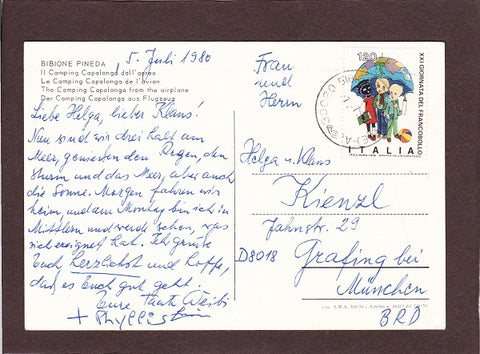 BIBIONE PINEDA
Il Camping Capalonga dall'aereo
Le Camping Capalonga de l'avion
The Camping Capalonga from the airplane
Der Camping Capalonga aus Flugzeug
5. Juli 1980
Liebe Helga, lieber Klaus!
Nun sind wir drei halt am
Meer, genießen den Regen, den
Sturm und das Meer, aber auch
die Sonne. Morgen fahren wir
heim, und am Montag bin ich in
und werde sehen, was
sich ereignet hat. Ich grüße
Euch herzlichst und hoffe,
daß es Euch gut geht.
Eure
+ Phyllis
Frau
und
Herrn
Helga u. Klaus
Kienzl
Jahnstr. 29
D8018 Grafing bei
München
BRD
120
XXII GIORNATA DEL FRANCOBOLLO
ITALIA